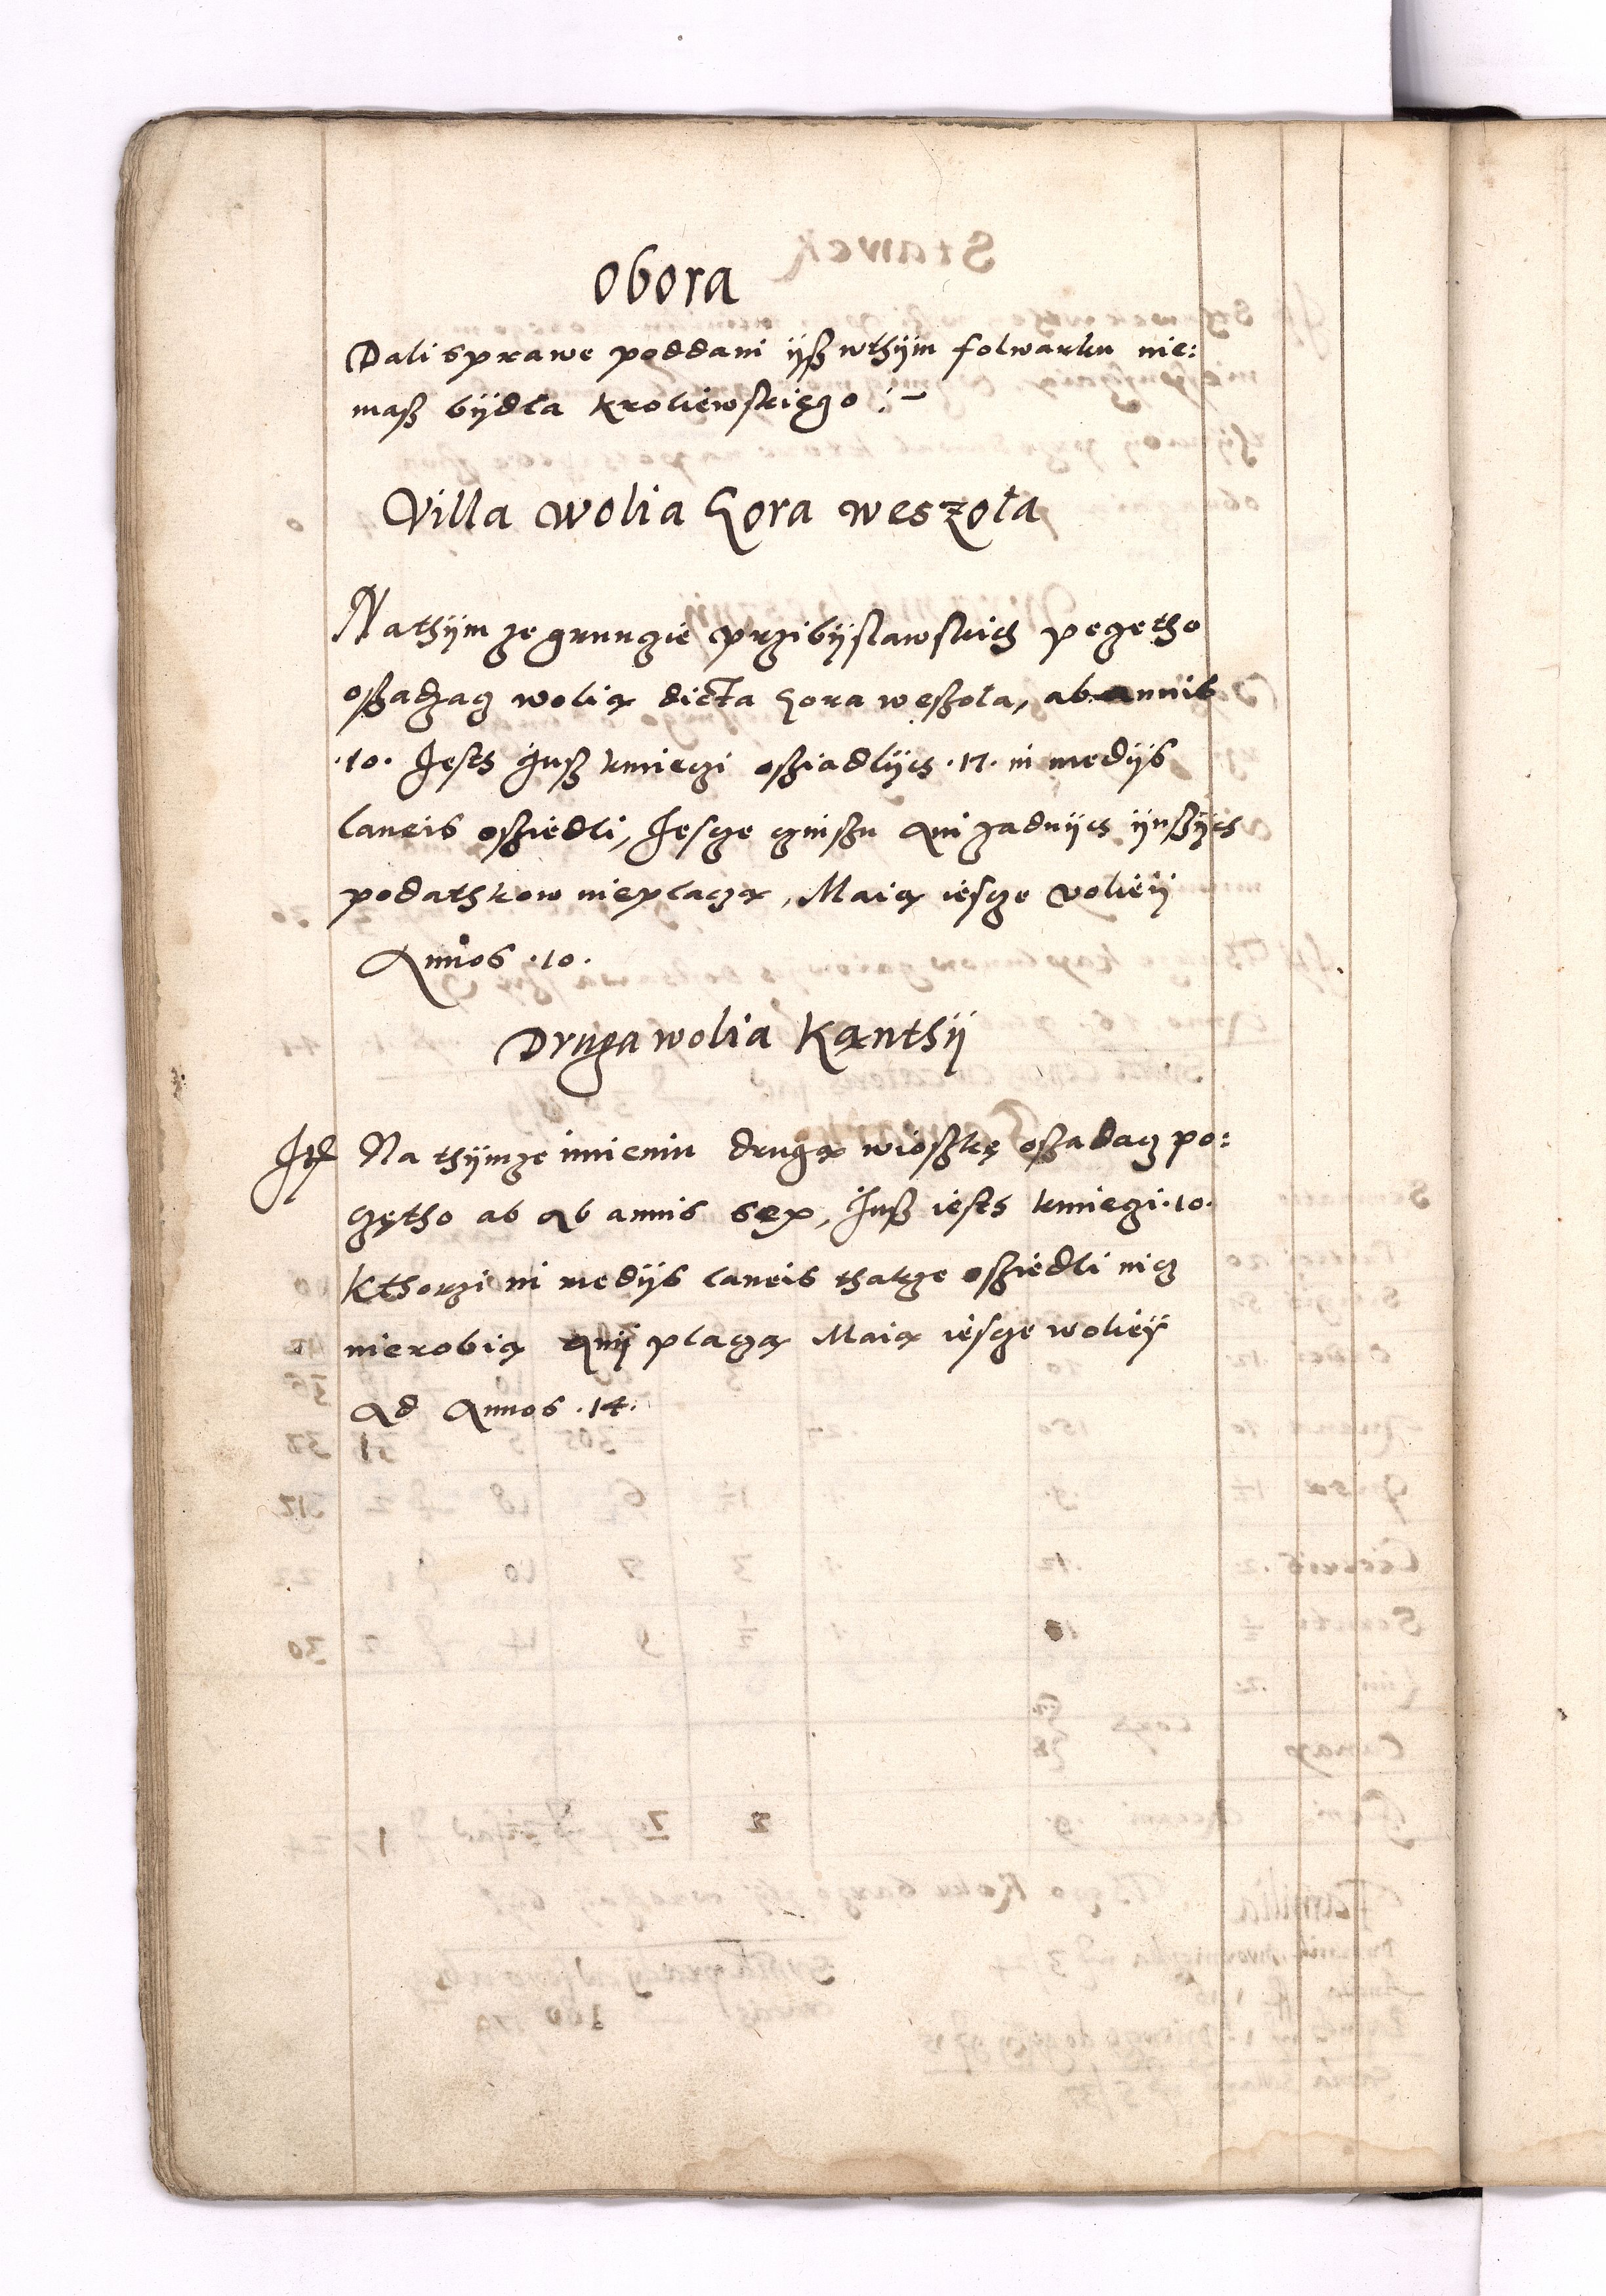 Obora
Dali sprawe poddani ÿsz wthÿm folwarku nie:
masz bÿdła kroliewskięgo :-
Villa Wolia Gora Weszoła
Nathÿm ze grunczie przibÿslawskich poczetho
oszadzacz wolią dicta Gora weszoła, ab annis
.10. Jesth jusz kmieczi osziadlÿch .17. in medÿs
laneis osziedli, Jescze czinszu ani zadnÿch ÿnszÿch
podathkow nieplaczą, Maią iescze voliéÿ
Annos .10.
Druga wolia Kąnthÿ
Itē Na thÿmze imieniu drugą wioszkę oszadacz po:
czętho ab ab annis sex, Jusz iesth kmieczi .10.
Kthorzi in medÿs laneis thakze osziedli nicz
nierobią anÿ placzą Maią iescze woliéÿ
Ad Annos .14.